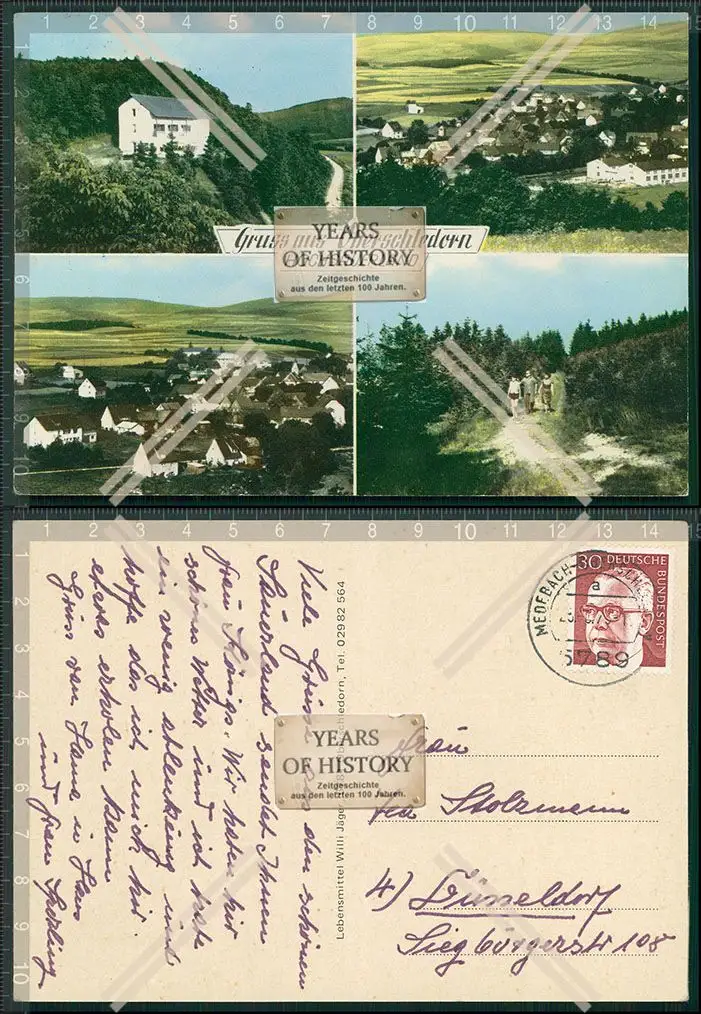 1 2 3 4 5 6 7 8 9 10 11 12 13 14
Gruss aus Oberschledorn
YEARS
OF HISTORY
Zeitgeschichte
aus den letzten 100 Jahren.
1 2 3 4 5 6 7 8 9 10 11 12 13 14
Viele Grüsse aus dem schönen
Sauerland sendet Ihnen
Frau Königs. Wir haben hir
schön Wetter und ich habe
ein wenig ablenkung und
hoffe das ich mich hir
etwas erholen kann
Gruss von Hans u Haus
und frau
Lebensmittel Willi Jäger, Oberschledorn, Tel. 02982 564
MEDEBACH
a
5789
30 DEUTSCHE
BUNDESPOST
YEARS
OF HISTORY
Zeitgeschichte
aus den letzten 100 Jahren.
Frau
Stolzmann
4) Düsseldorf
Siegburgerstr 108